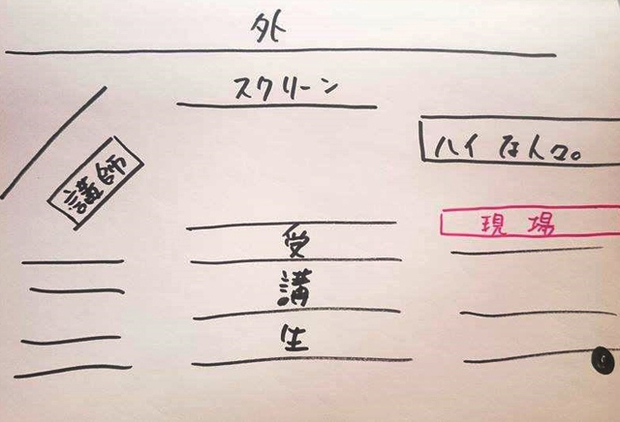 外
スクリーン
講師
ハイな人々。
現場
受
講
生